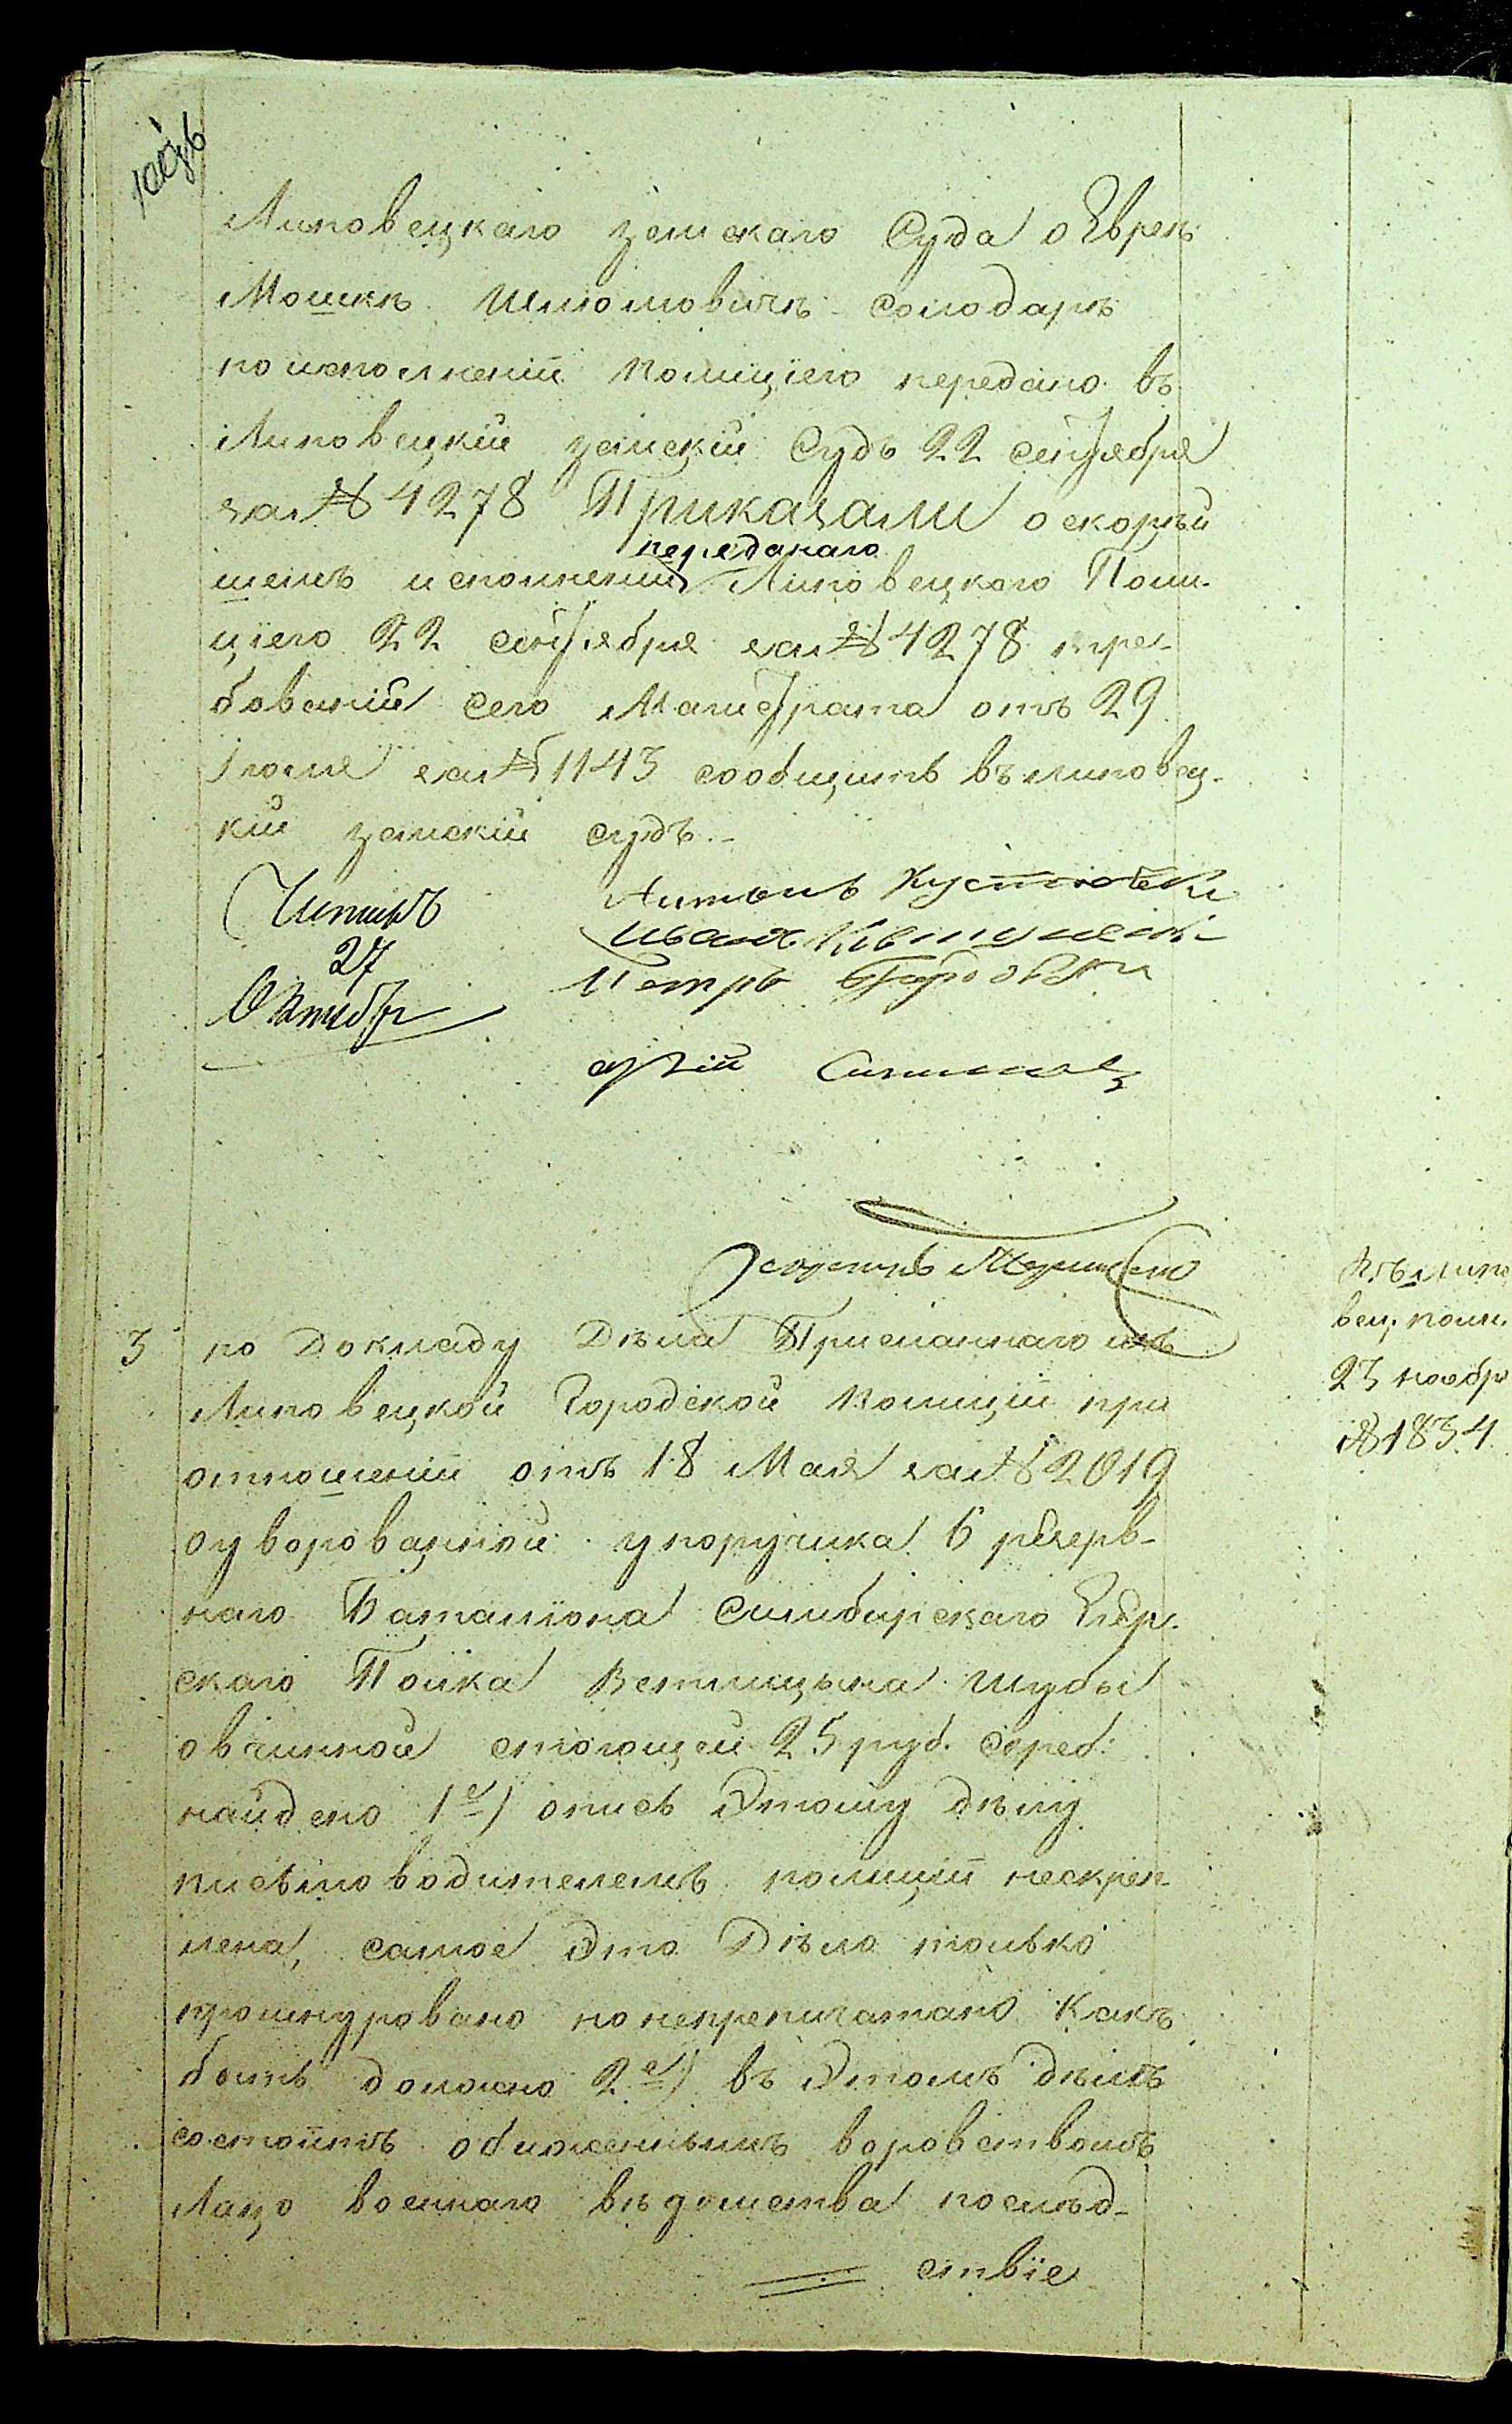 Липовецкаго земскаго Суда о Евреѣ
Мошкѣ Шлиомовичѣ солодарѣ
по исполненіи Полициею передано въ
Липовецкій земскій Судъ 22 сентября
за № 4278 Приказали о скорѣй
переданаго
шемъ исполненіи Липовецкого Поли-
циею 22 сентября за № 4278 тре-
бованій сего Магистрата отъ 29
Іюля за № 1143 сообщить въ липовец-
кій земскій судъ.-
Читалъ
27
Октябр
Антонъ
Иванъ
Петръ
Къ липо
вец. поли.
23 ноябр
№ 1834
3 по Докладу Дѣла Присланнаго изъ
Липовецкой Городской Полиціи при
отношеніи отъ 18 Мая за № 2019
о уворованной у поручика 6 резерв-
наго Баталиона Симбирскаго Егер-
скаго Полка Ветлицына шубы
овчинной стоющей 25 руб. сереб:
найдено 1е) опись Этому дѣлу
письмоводителемъ полиціи нескреп-
лена, самое Это Дѣло только
прошнуровано но непрепечатано Какъ
быть должно 2е) въ Этомъ дѣлѣ
состоитъ обиженнымъ воровствомъ
Лицо военнаго вѣдомства послѣд-
ствіе